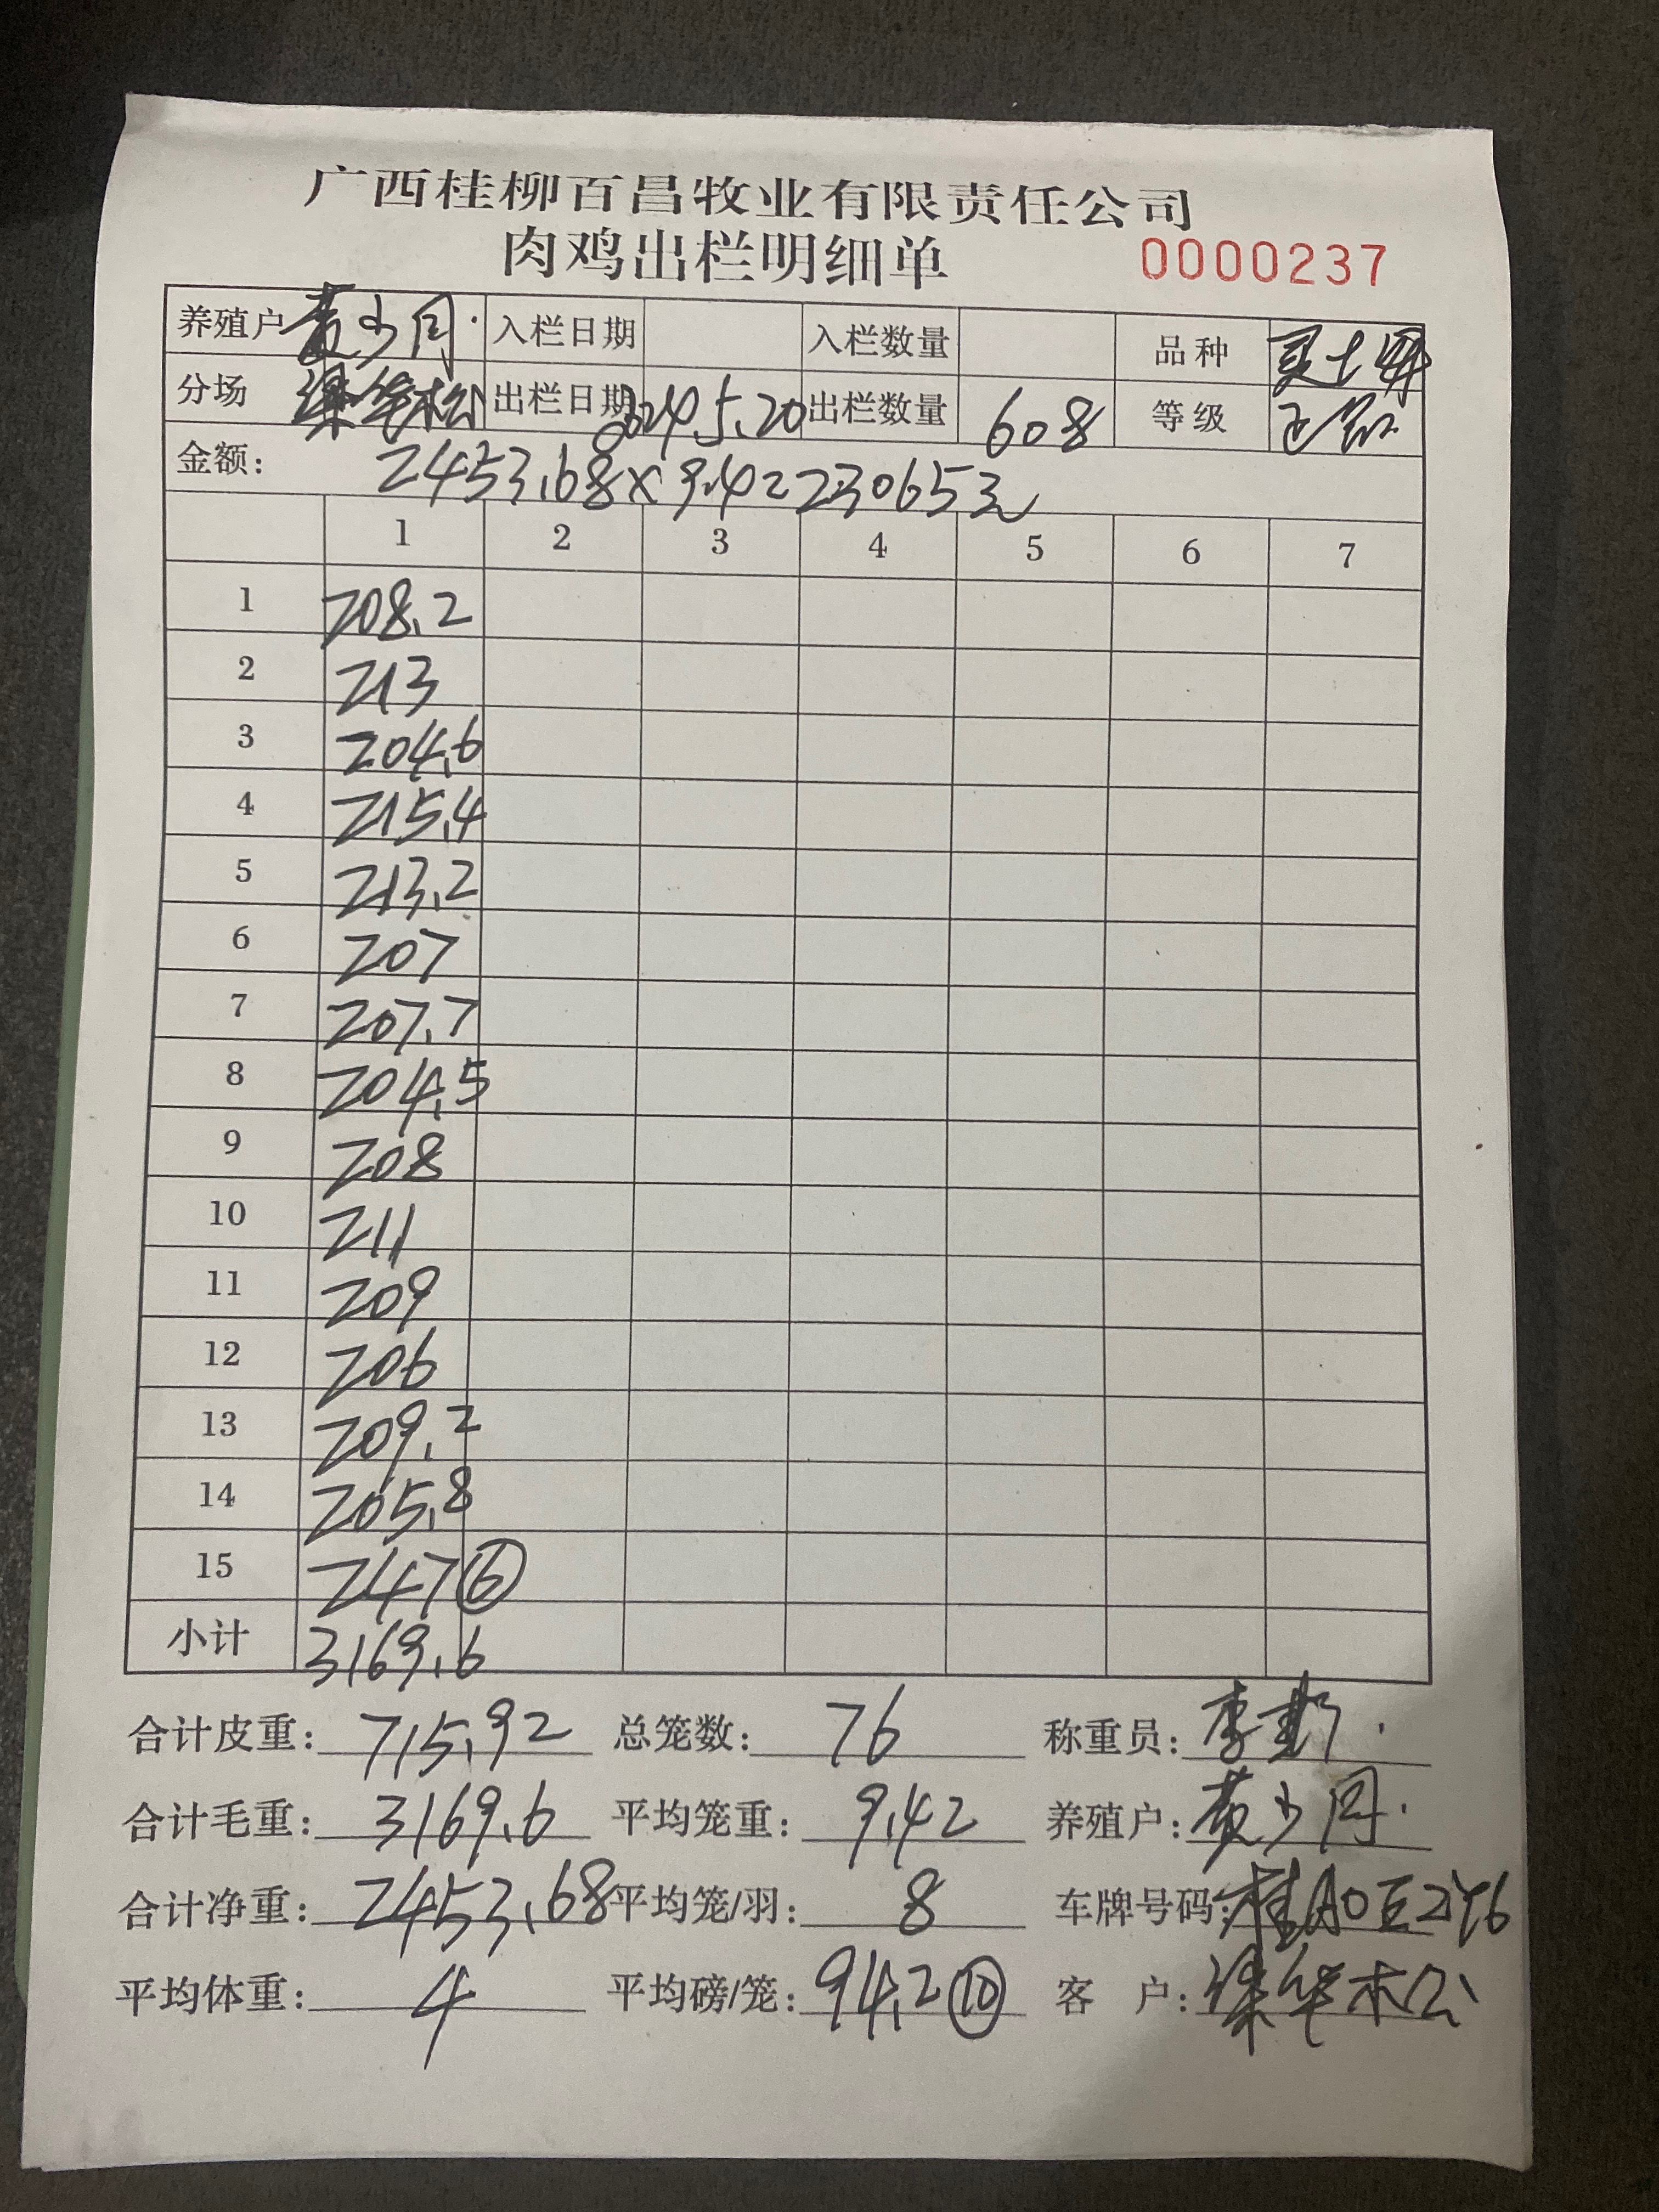 广西桂柳百昌牧业有限责任公司
肉鸡出栏明细单 0000237
养殖户 黄少同 入栏日期 入栏数量 品种 土
分场 梁华松 出栏日期 2024.5.20 出栏数量 608 等级 正
金额: 2453.68×9.4=23065元
1 2 3 4 5 6 7
1 208.2
2 213
3 204.6
4 215.4
5 213.2
6 207
7 207.7
8 204.5
9 208
10 211
11 209
12 206
13 209.2
14 205.8
15 247 ⑥
小计 3169.6
合计皮重: 715.92 总笼数: 76 称重员: 李
合计毛重: 3169.6 平均笼重: 9.42 养殖户: 黄少同
合计净重: 2453.68 平均笼/羽: 8 车牌号码:
平均体重: 4 平均磅/笼: 94.2 ⑩ 客 户: 梁华松